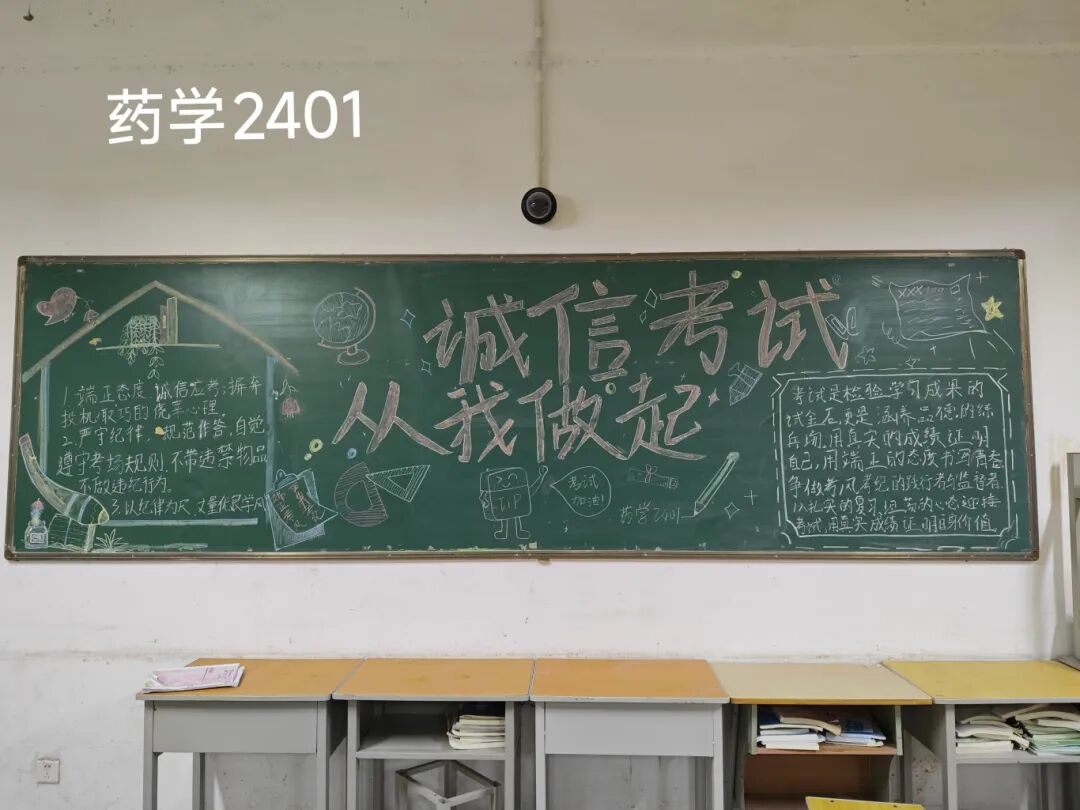 药学2401
诚信考试
从我做起
1.端正态度,诚信应考;摒弃
投机取巧的侥幸心理。
2.严守纪律,规范作答,自觉
遵守考场规则,不带违禁物品
不做违纪行为。
3.以纪律为尺,丈量优良学风
考试
加油!
药学2401
XXX100
考试是检验学习成果的
试金石,更是涵养品德的练
兵场,用真实的成绩证明
自己,用端正的态度书写青春
争做考风考纪的践行者与监督者
以扎实的复习,坦荡的心态迎接
考试,用真实成绩证明自身价值